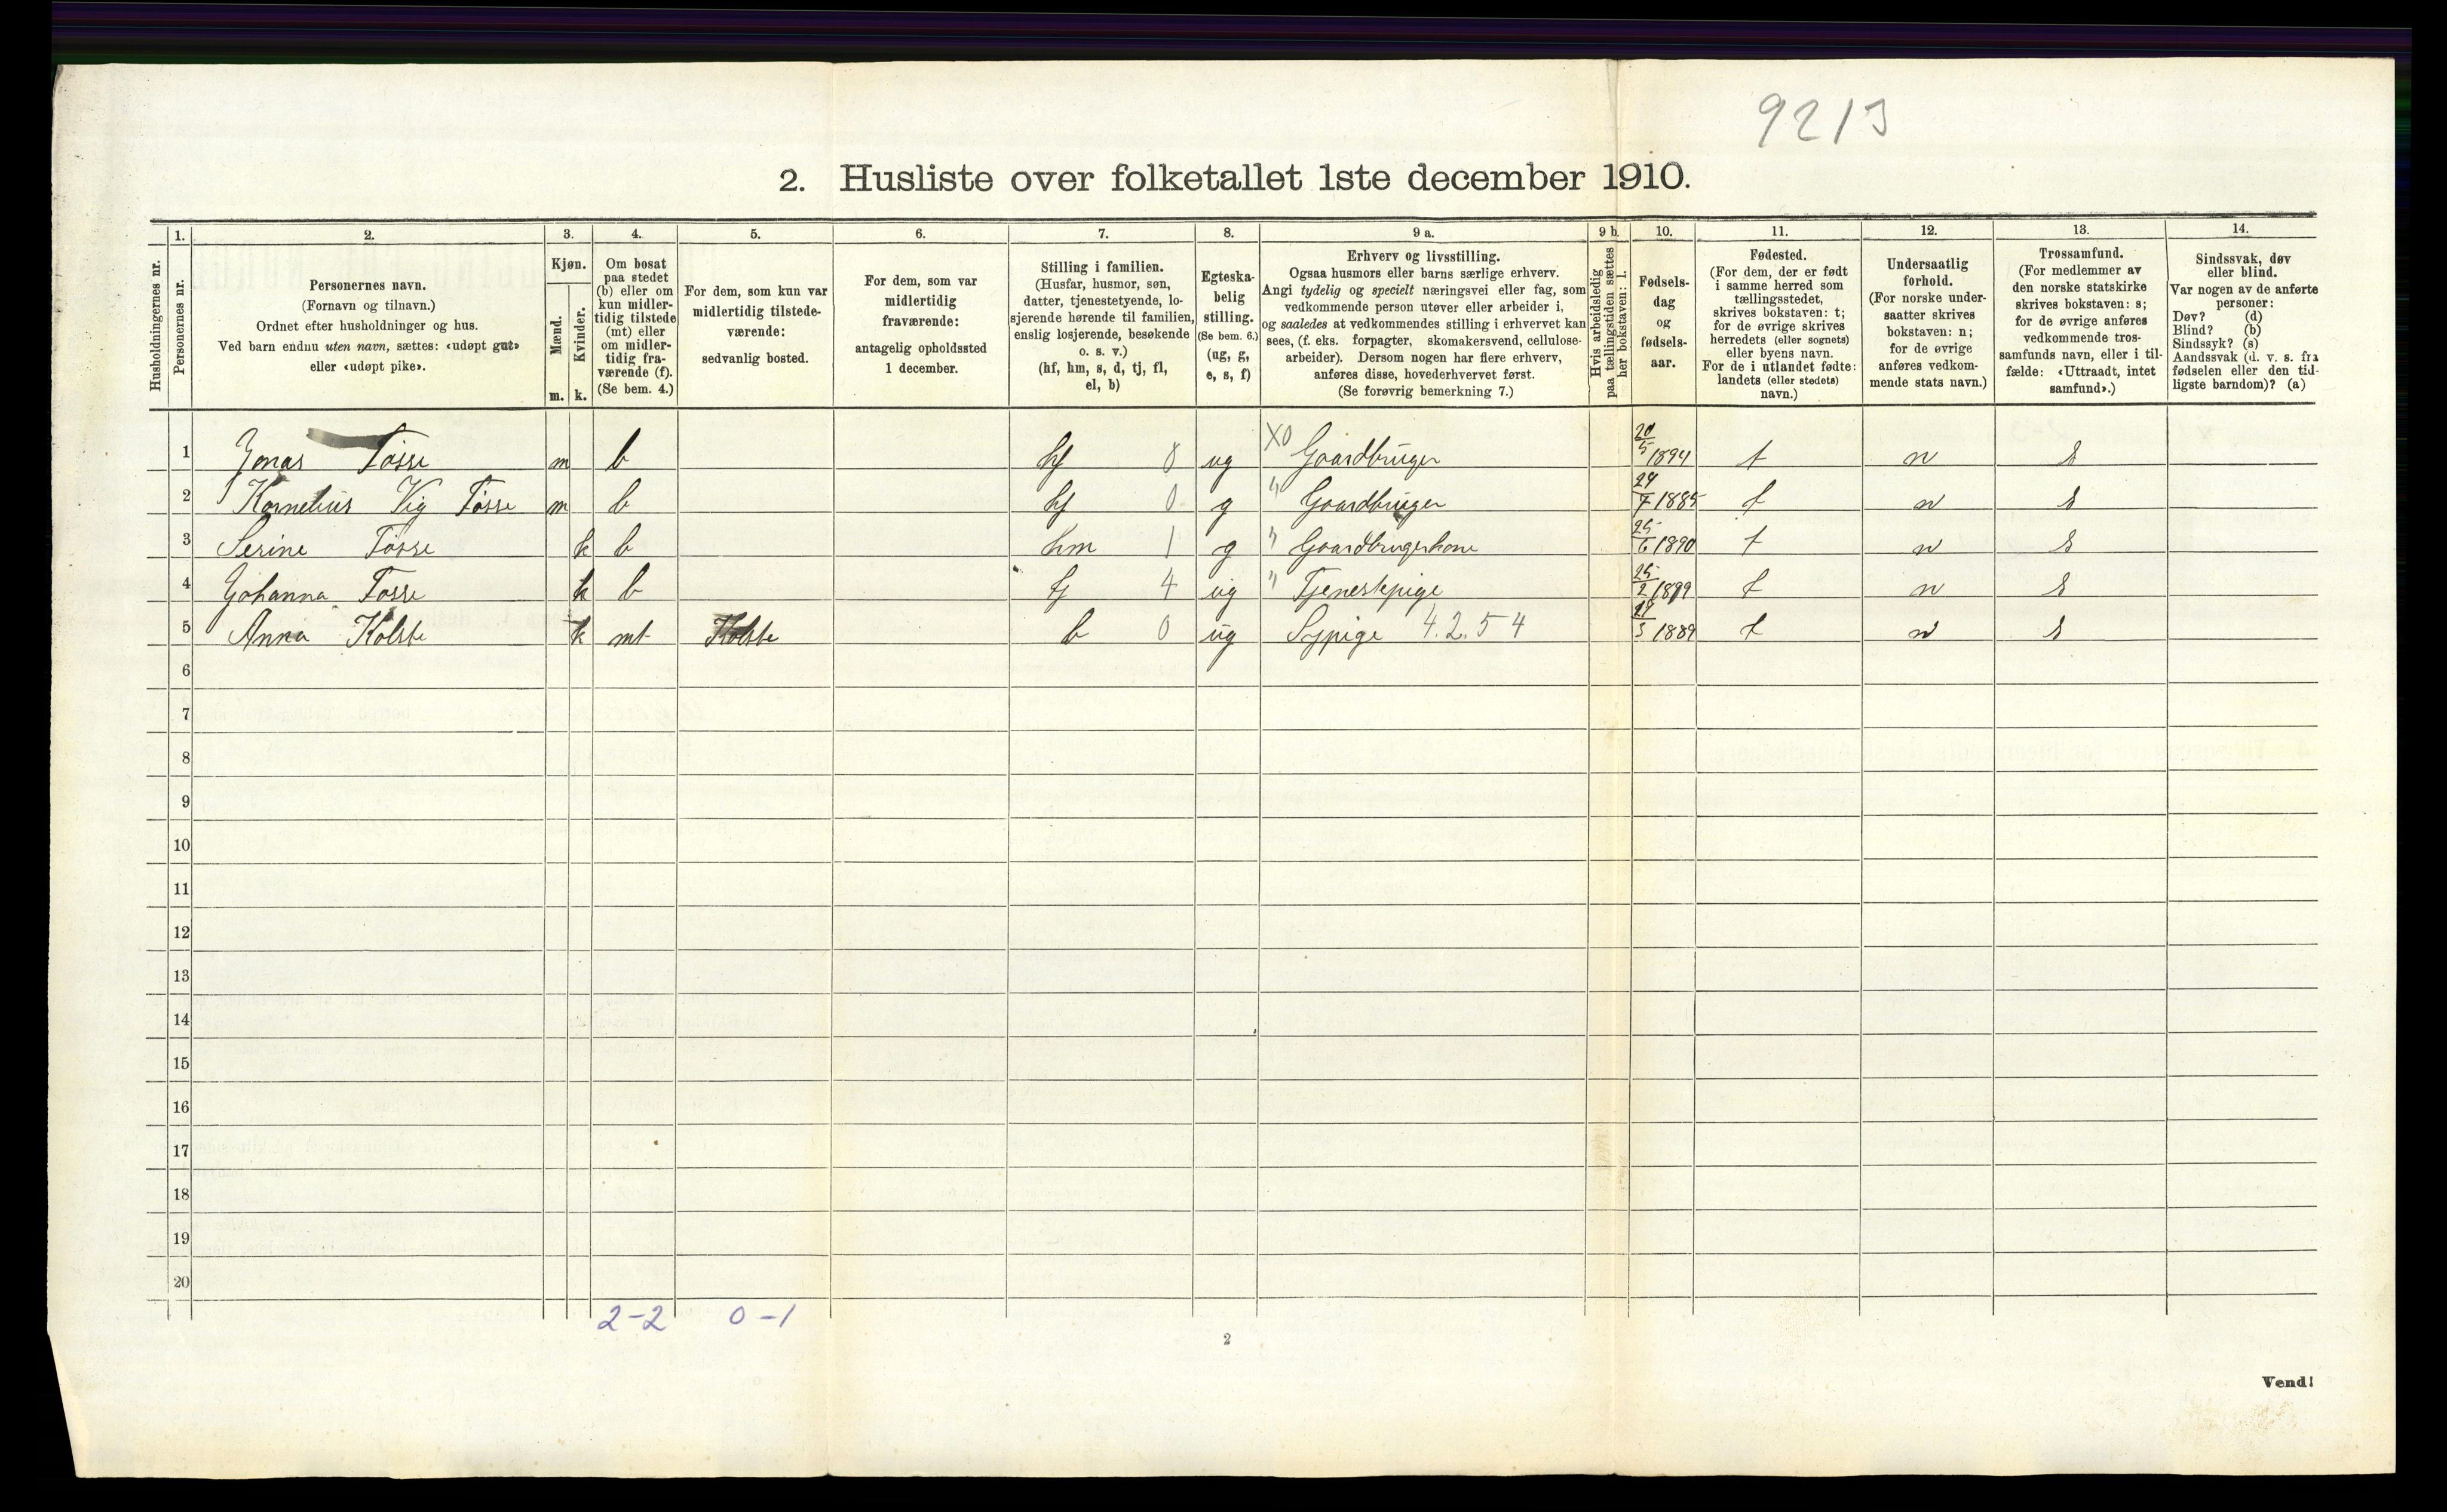 9213
2. Husliste over folketallet 1ste december 1910.
Husholdningernes nr.
1.
Personernes nr.
2.
Personernes navn.
(Fornavn og tilnavn.)
Ordnet efter husholdninger og hus.
Ved barn endnu uten navn, sættes: «udøpt gut»
eller «udøpt pike».
3.
Kjøn.
Mænd.
Kvinder.
m. k.
4.
Om bosat
paa stedet
(b) eller om
kun midler-
tidig tilstede
(mt) eller
om midler-
tidig fra-
værende (f).
(Se bem. 4.)
5.
For dem, som kun var
midlertidig tilstede-
værende:
sedvanlig bosted.
6.
For dem, som var
midlertidig
fraværende:
antagelig opholdssted
1 december.
7.
Stilling i familien.
(Husfar, husmor, søn,
datter, tjenestetyende, lo-
sjerende hørende til familien,
enslig losjerende, besøkende
o. s. v.)
(hf, hm, s, d, tj, fl,
el, b)
8.
Egteska-
belig
stilling.
(Se bem. 6.)
(ug, g,
e, s, f)
9 a.
Erhverv og livsstilling.
Ogsaa husmors eller barns særlige erhverv.
Angi tydelig og specielt næringsvei eller fag, som
vedkommende person utøver eller arbeider i,
og saaledes at vedkommendes stilling i erhvervet kan
sees, (f. eks. forpagter, skomakersvend, cellulose-
arbeider). Dersom nogen har flere erhverv,
anføres disse, hovederhvervet først.
(Se forøvrig bemerkning 7.)
9 b.
Hvis arbeidsledig
paa tællingstiden sættes
her bokstaven: l.
10.
Fødsels-
dag
og
fødsels-
aar.
11.
Fødested.
(For dem, der er født
i samme herred som
tællingsstedet,
skrives bokstaven: t;
for de øvrige skrives
herredets (eller sognets)
eller byens navn.
For de i utlandet fødte:
landets (eller stedets)
navn.)
12.
Undersaatlig
forhold.
(For norske under-
saatter skrives
bokstaven: n;
for de øvrige
anføres vedkom-
mende stats navn.)
13.
Trossamfund.
(For medlemmer av
den norske statskirke
skrives bokstaven: s;
for de øvrige anføres
vedkommende tros-
samfunds navn, eller i til-
fælde: «Uttraadt, intet
samfund».)
14.
Sindssvak, døv
eller blind.
Var nogen av de anførte
personer:
Døv? (d)
Blind? (b)
Sindssyk? (s)
Aandssvak (d. v. s. fra
fødselen eller den tid-
ligste barndom)? (a)
1 Jonas Tøsse m b hf 8 ug X0 Gaardbruger 20/5 1894 t n s
2 Kornelius Vig Tøsse m b hf 0 g " Gaardbruger 24/7 1885 t n s
3 Serine Tøsse k b hm 1 g " Gaardbrugerkone 25/6 1890 t n s
4 Johanna Tøsse k b tj 4 ug " Tjenestepige 25/2 t n s
5 Anna Kolste k mt Kolste b 0 ug Sypige 4.2.54 29/3 1889 t n s
6
7
8
9
10
11
12
13
14
15
16
17
18
19
20
2-2 0-1
2
Vend!